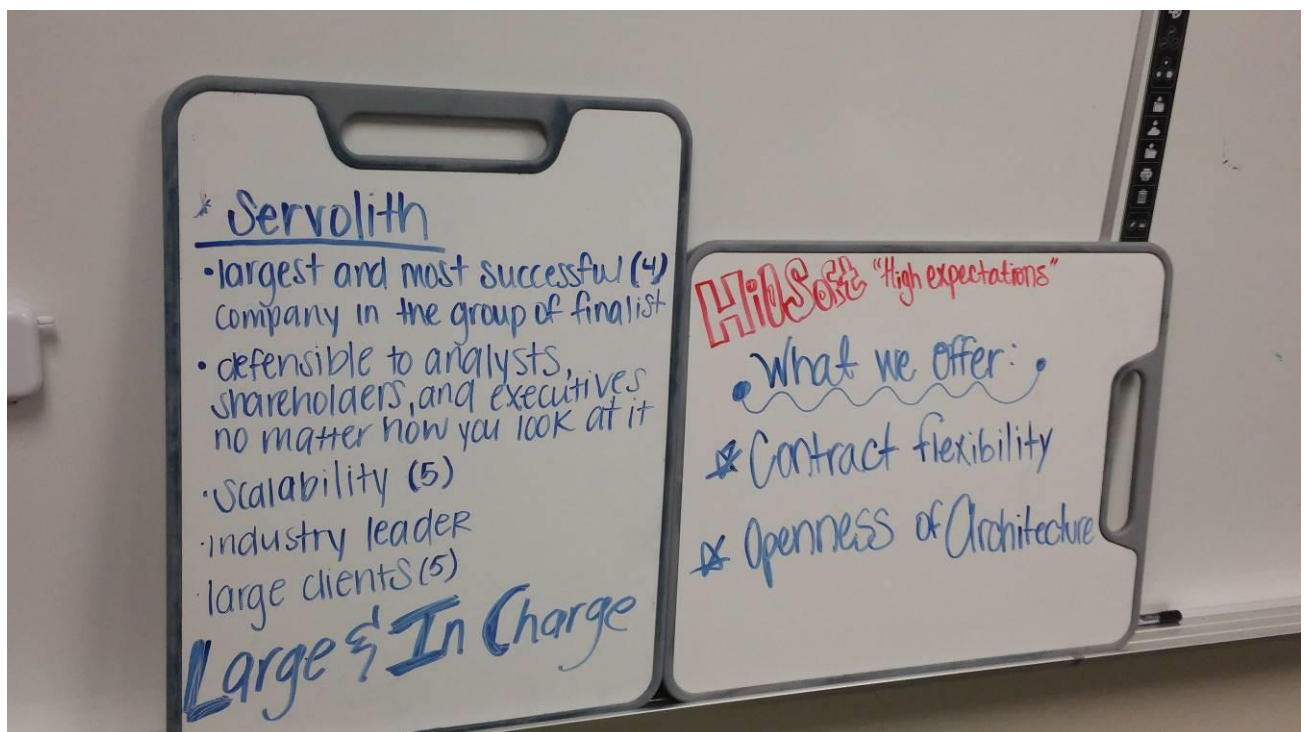 * Servolith
• largest and most successful (4)
company in the group of finalist
• defensible to analysts,
shareholders, and executives
no matter how you look at it
• scalability (5)
• industry leader
• large clients (5)
Large & In Charge
HiOSoft "High expectations"
What we offer:
* Contract flexibility
* Openness of Architecture